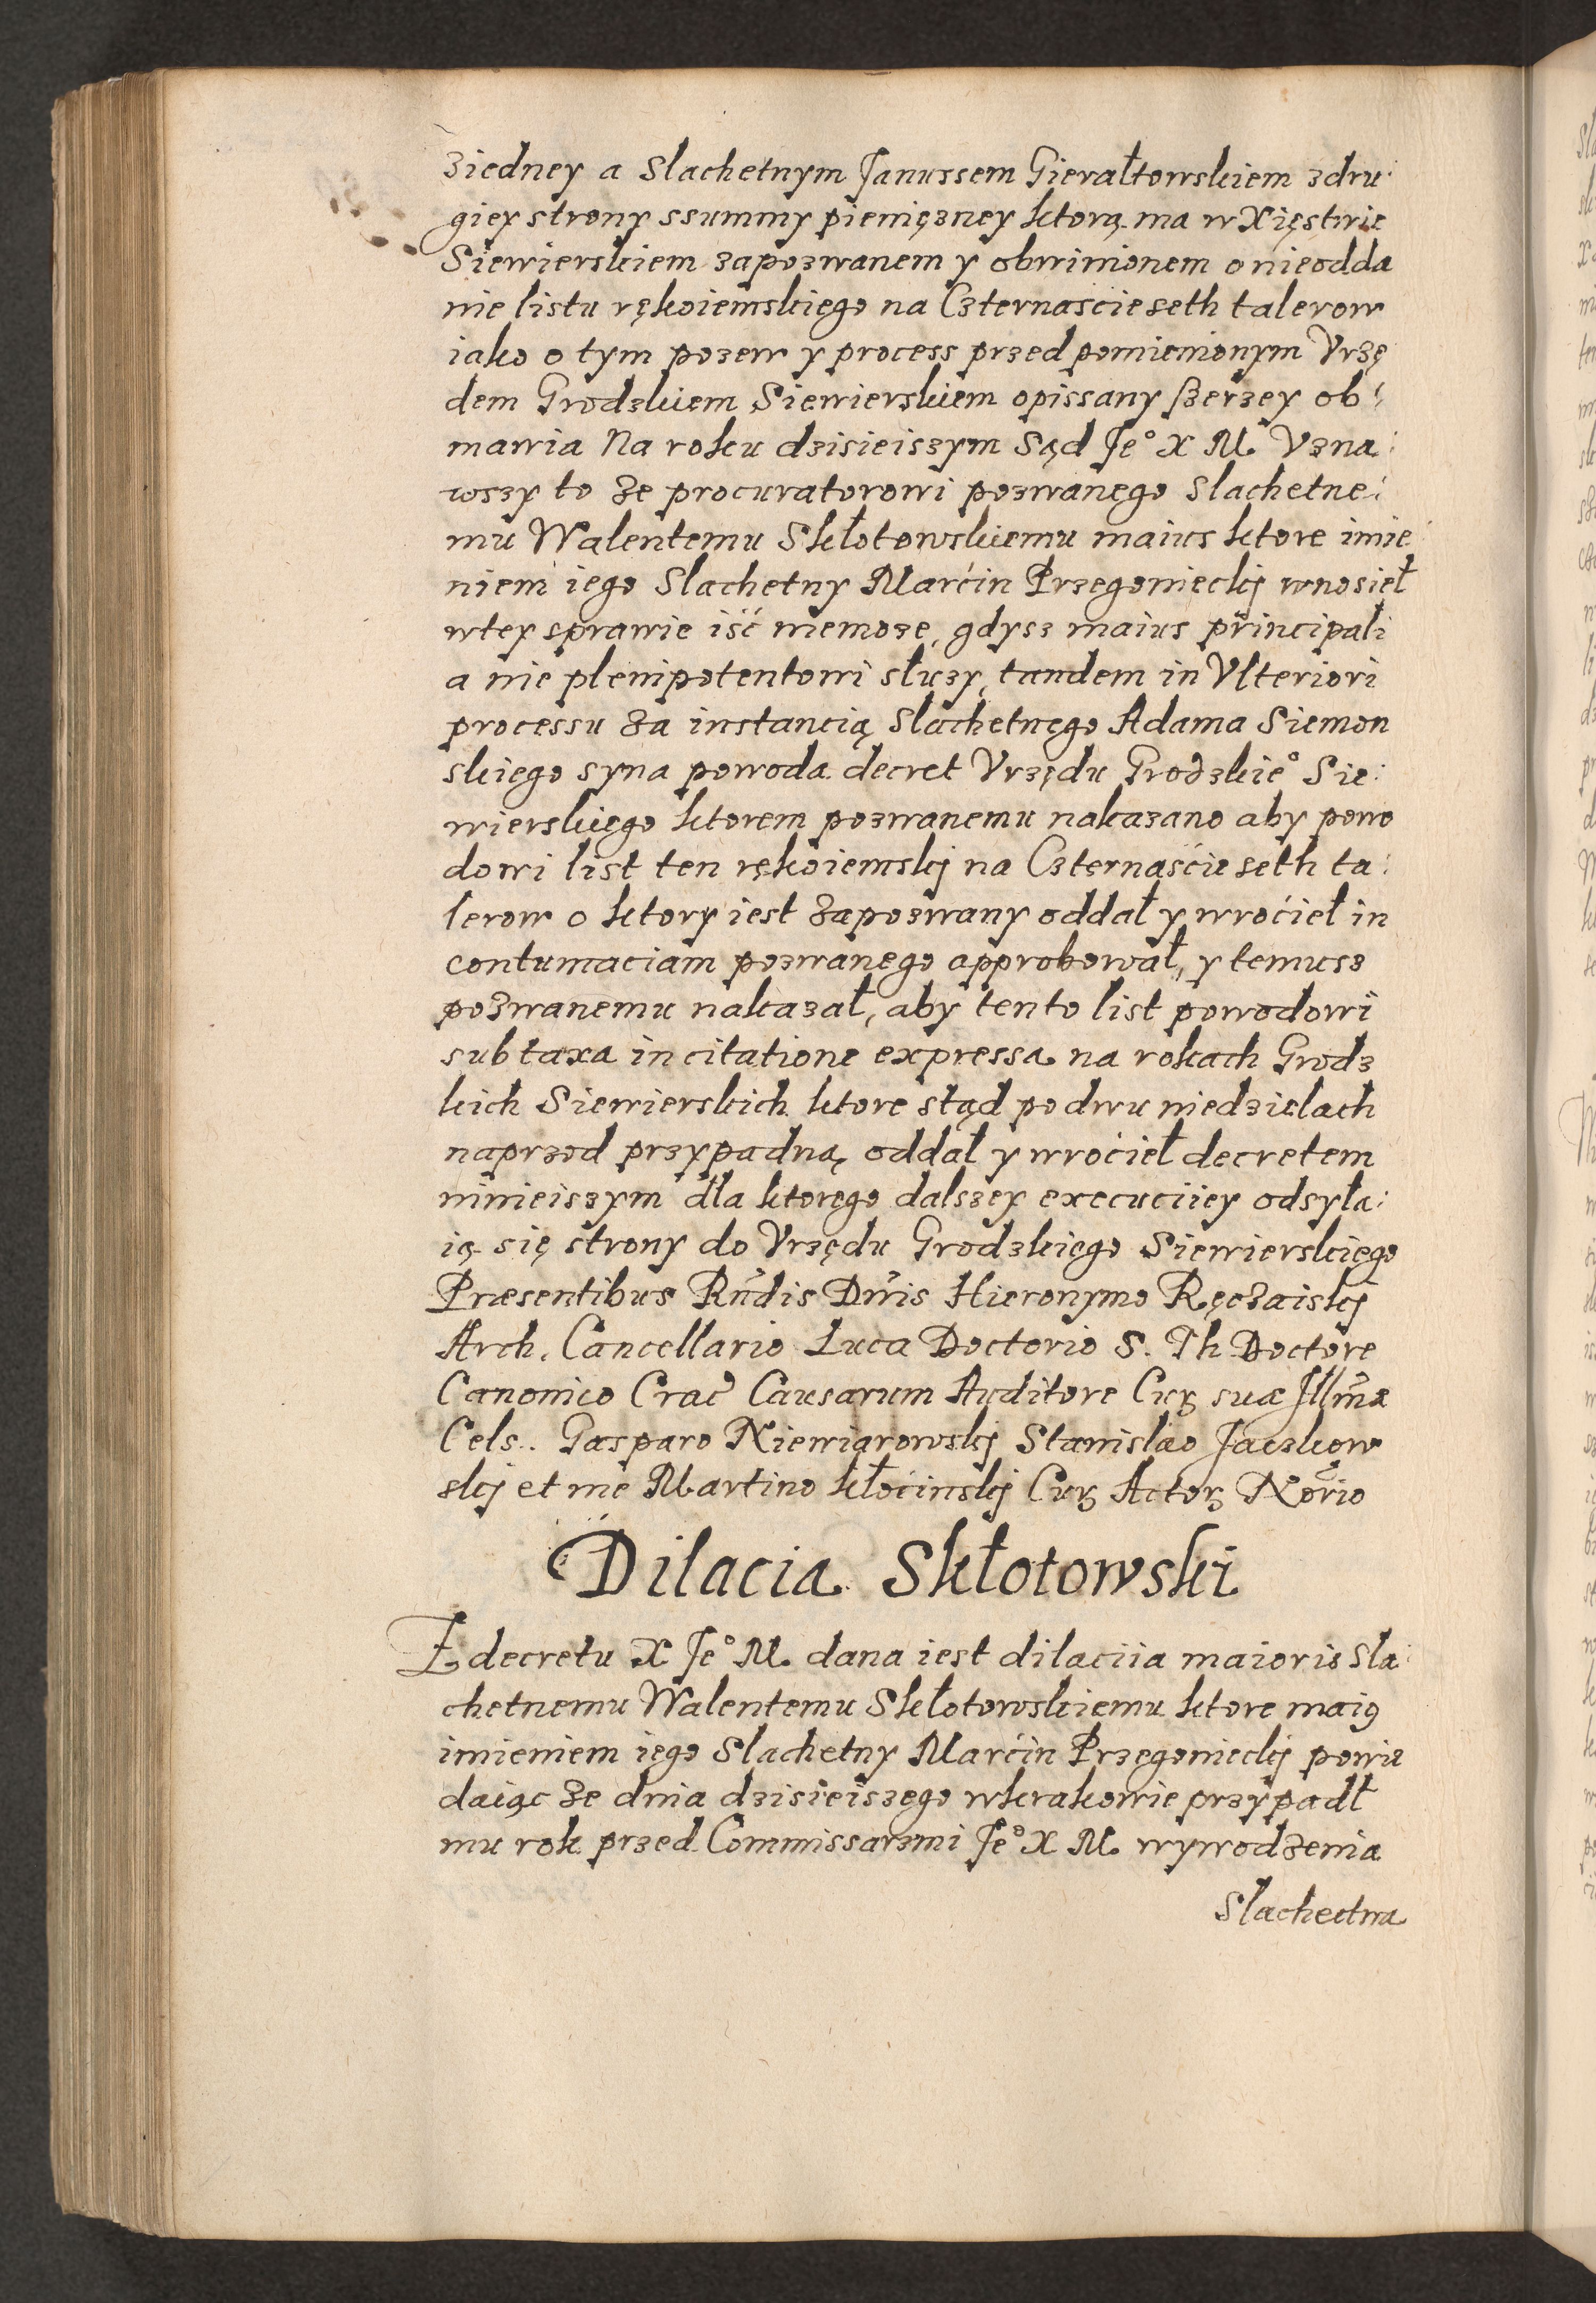 ziedney a Slachetnym Janussem Gierałtowskiem zdru:
giey strony ssummy pieniężney ktorą ma w Xięstwie
Siewierskiem zapozwanem y obwinionem o nieodda
nie listu rękoiemskiego na Czternascieseth talerow
iako o tym pozew y process przed pomienionym Vrzę
dem Grodzkiem Siewierskiem opissany szerzey ob:
mawia Na roku dzisieiszym Sąd Je° X M. Vzna:
wszy to że procuratorowi pozwanego Slachetne:
mu Walentemu Skłotowskiemu maius ktore imie
niem iego Slachetny Marćin Przegonieckij wnosieł
wtey sprawie iść niemoże, gdysz maius principali
a nie plenipotentowi służy, tandem in Vlteriori
processu za instancią Slachetnęgo Adama Siemon
skiego syna powoda decret Vrzędu Grodzkie° Sie:
wierskięgo ktorem pozwanemu nakazano aby powo
dowi list ten rękoiemskij na Czternaście seth ta:
lerow o ktory iest zapozwany oddał y wroćieł in
contumaciam pozwanego approbował, y temusz
pozwanemu nakazał, aby tento list powodowi
sub taxa in citatione expressa na rokach Grodz
kich Siewierskich ktore stąd po dwu niedzielach
naprzod przypadną oddał y wroćieł decretem
ninieiszym dla ktorego dalszey execuciiey odsyła:
ią się strony do Vrzędu Grodzkięgo Siewierskięgo
Præsentibus Rndis Dnis Hieronymo Ręczaiskij
Arch. Cancellario Luca Doctorio S. Th Doctore
Canonico Crac Causarum Auditore Curꝫ suæ Jllmæ
Cels. Gasparo Niewiarowskij Stanislao Jaczkow
skij et me Martino kłoćinskij Curꝫ Actorꝫ Norio
Dilacia Skłotowski
Z decretu X Je° M. dana iest dilaciia maioris Sla
chetnemu Walentemu Skłotowskiemu ktore maig
imieniem iego Slachetny Marćin Przęgonieckij powie
daiąc że dnia dzisieiszęgo wkrakowie przypadł
mu rok przed Commissarzmi Je° X M. wywodzenia
Slachectwa